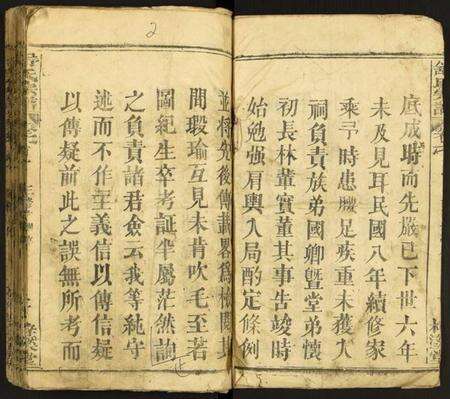 底成時而先嚴已下世六年
未及見耳民國八年續修家
乘予時患臌足疾重未獲入
祠負責族弟國卿暨堂弟懷
初長林董實董其事告竣時
始勉强肩輿入局酌定條例
並將先後傳載畧爲
間瑕瑜互見未肯吹毛至若
圖紀生卒考証半屬茫然詢
之負責諸君僉云我等純守
述而不作主義信以傳信疑
以傳疑前此之誤無所考而
2